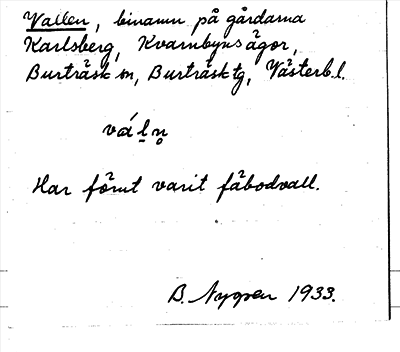 Vallen, binamn på gårdarna
Karlsberg, Kvarnbyns ägor,
Burträsk sn, Burträsk tg, Västerb.l.
vál̠n̥
Har förut varit fäbodvall.
B. Nygren 1933.